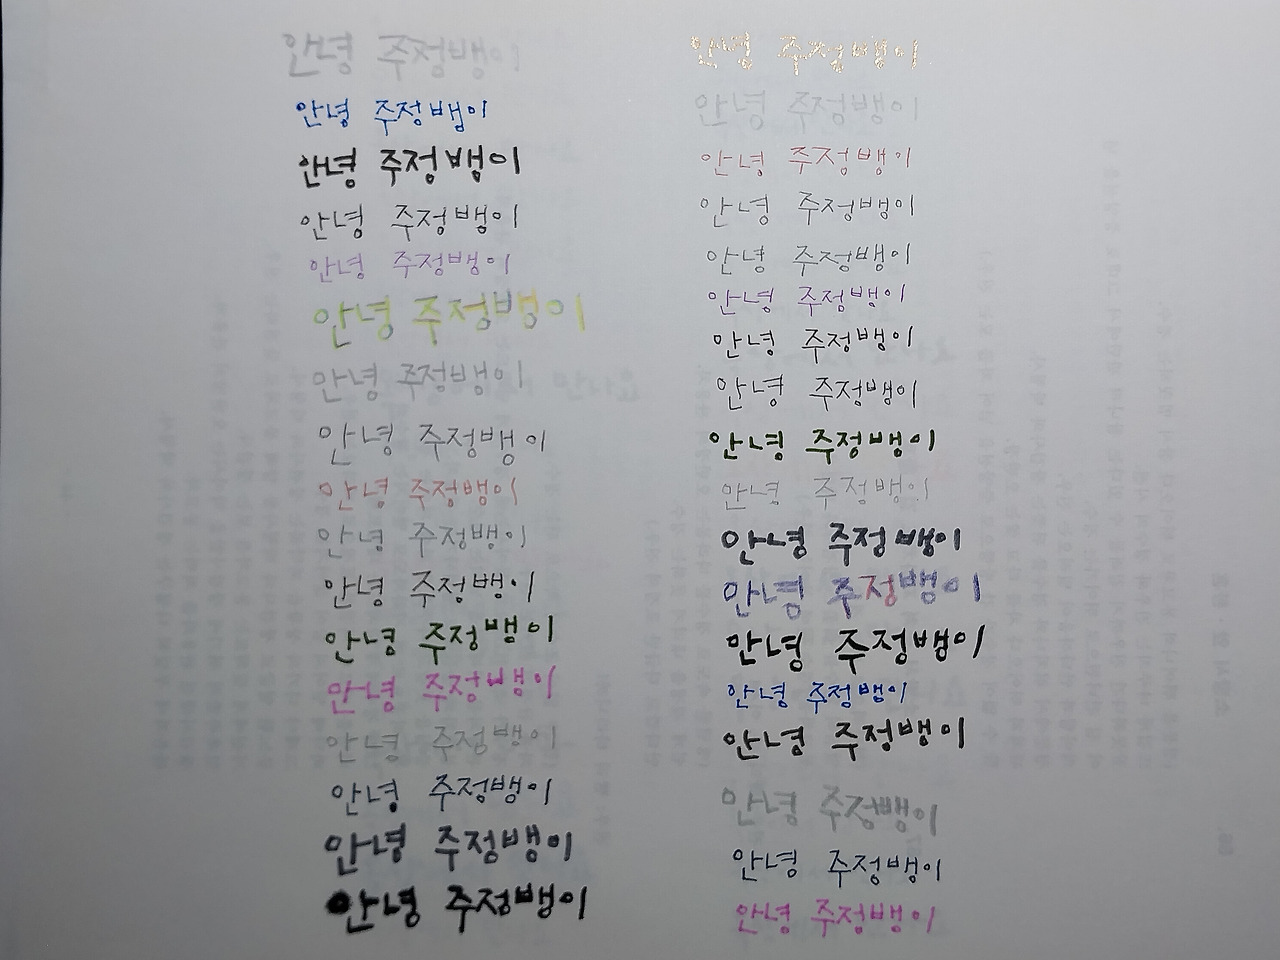 안녕 주정뱅이
안녕 주정뱁이
안녕 주정뱅이
안녕 주정뱅이
안녕 주정뱅이
안녕 주정뱅이
안녕 주정뱅이
안녕 주정뱅이
안녕 주정뱅이
안녕 주정뱅이
안녕 주정뱅이
안녕 주정뱅이
안녕 주정뱅이
안녕 주정뱅이
안녕 주정뱅이
안녕 주정뱅이
안녕 주정뱅이
안녕 주정뱅이
안녕 주정뱅이
안녕 주정뱅이
안녕 주정뱅이
안녕 주정뱅이
안녕 주정뱅이
안녕 주정뱅이
안녕 주정뱅이
안녕 주정뱅이
안녕 주정뱅이
안녕 주정뱅이
안녕 주정뱅이
안녕 주정뱅이
안녕 주정뱅이
안녕 주정뱅이
안녕 주정뱅이
안녕 주정뱅이
안녕 주정뱅이